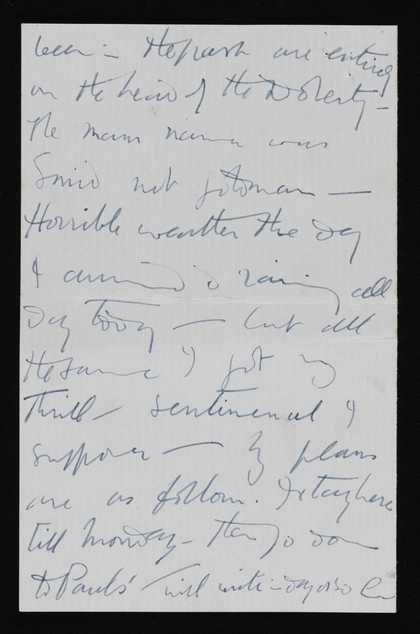 been – The pash are
on the head of the
The man's name was
Smid not –
Horrible weather the day
I arrived & raining all
Day today – but all
the same I got my
Thrill – sentimental I
suppose – My plans
are as follow. I stay here
till Monday – then go
to Pauls' – will